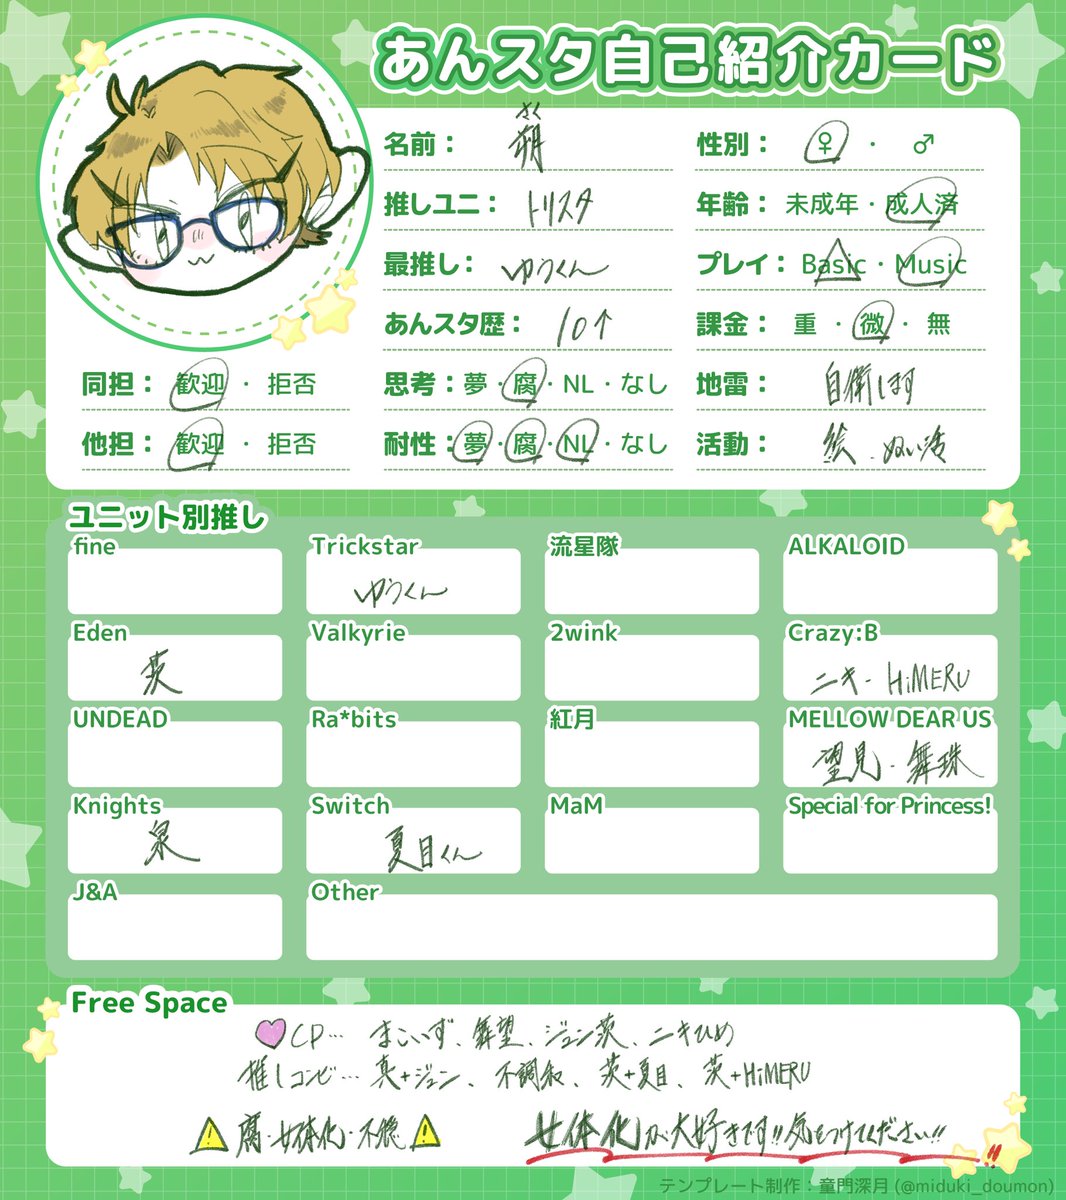 あんスタ自己紹介カード
さく
名前： 朔
性別： ♀ ・ ♂
推しユニ： トリスタ
年齢： 未成年・成人済
最推し： ゆうくん
プレイ： Basic・Music
あんスタ歴： 10↑
課金： 重・微・無
同担： 歓迎 ・ 拒否
思考： 夢・腐・NL・なし
地雷： 自衛します
他担： 歓迎 ・ 拒否
耐性： 夢・腐・NL・なし
活動： 絵・ぬい活
ユニット別推し
fine
Trickstar
流星隊
ALKALOID
ゆうくん
Eden
Valkyrie
2wink
Crazy:B
茨
ニキ・HiMERU
UNDEAD
Ra*bits
紅月
MELLOW DEAR US
望見・舞珠
Knights
Switch
MaM
Special for Princess!
泉
夏目くん
J&A
Other
Free Space
CP… まこいず、舞望、ジュン茨、ニキひめ
推しコンビ… 真+ジュン、不調和、茨+夏目、茨+HiMERU
⚠腐・女体化・不穏⚠ 女体化が大好きです!!気をつけてください!!
!!
テンプレート制作：童門深月 (@miduki_doumon)